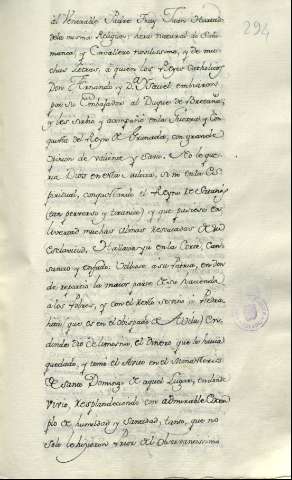 294
al Venerable Padre Fray Juan Hurtado
dela misma Religion; este natural de Sala-
manca, y Cavallero nobilissimo, y de mu-
chas letras, a quien los Reyes Catholicos
Don Fernando y D.ª Ysavel embiaron
por su Embajador al Duque de Bretaña;
y les sirbio y acompañó en la Guerra y Con-
quista del Reyno de Granada, con grande
opinion de valiente y sabio. No le que-
ria Dios en esta milicia, si no en la Es-
piritual, conquistando el Reyno de Satanas
tan perverso y tirano, y que pusiese en
livertad muchas almas rescatadas de su
esclavitud. Hallavase en la Corte, Can-
sancio y enfado. Volbiose a su Patria, en don-
de repartio la maior parte de su hacienda
a los Pobres, y con el resto se vino a Piedra-
hita que es en el obispado de Avila,
diendo de limosna, el dinero que le havia
quedado, y tomó el Avito en el Monasterio
de Santo Domingo de aquel Lugar, en donde
vivio, resplandeciendo con admirable exem-
plo de humildad y Santidad, tanto, que no
solo le hizieron Prior del observantissimo